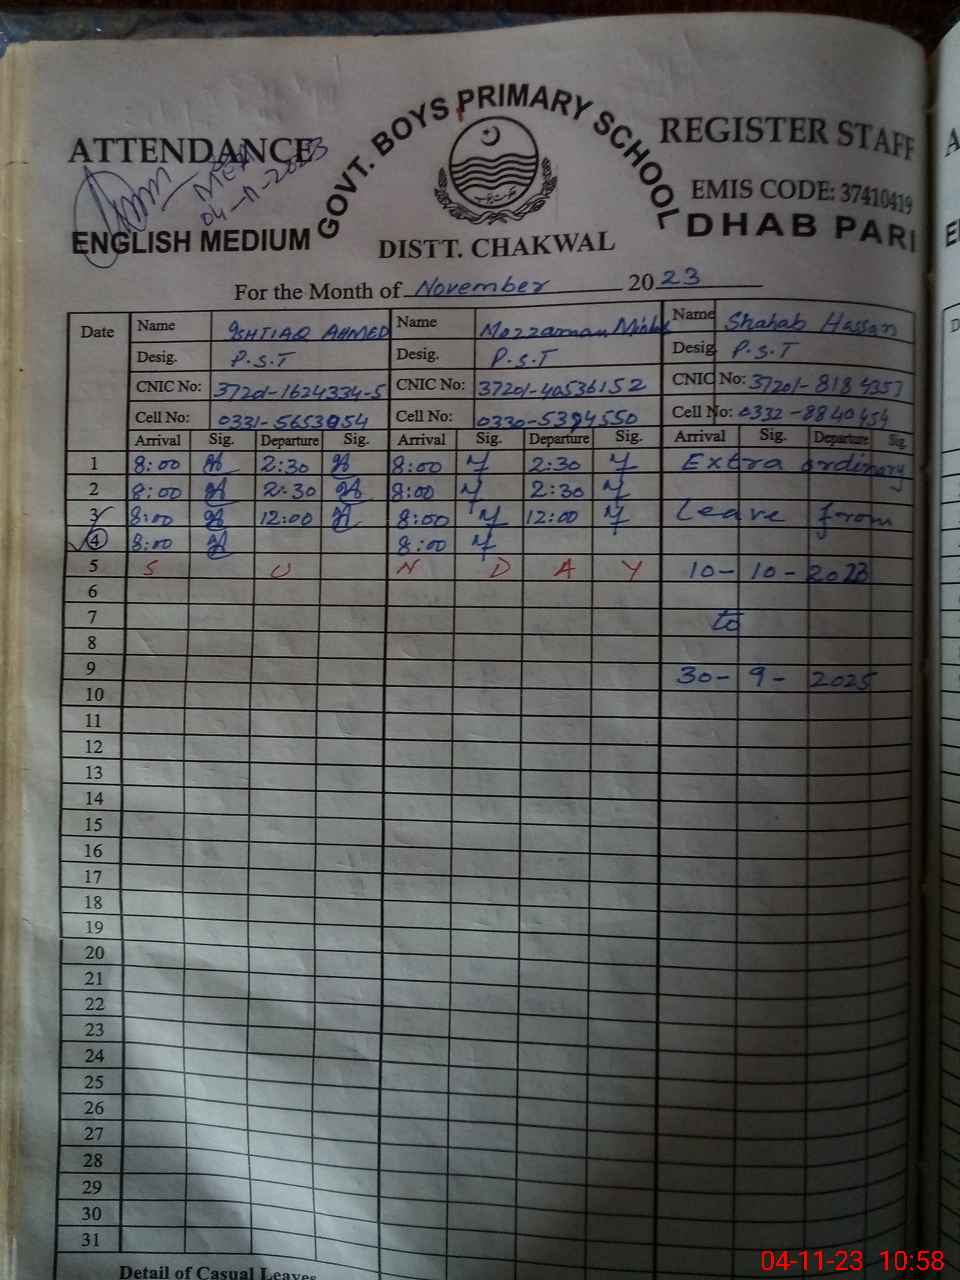 GOVT. BOYS PRIMARY SCHOOL
ATTENDANCE
REGISTER STAFF
MEA
04-11-2023
EMIS CODE: 37410419
ENGLISH MEDIUM
DISTT. CHAKWAL
DHAB PARI
For the Month of November 2023
Date Name ISHTIAQ AHMED Name Mozzaman Name Shahab Hassan
Desig. P.S.T Desig. P.S.T Desig P.S.T
CNIC No: 37201-1624334-5 CNIC No: 37201-4053615 2 CNIC No: 37201-818 4357
Cell No: 0331-5653954 Cell No: 0330-5394550 Cell No: 0332-8840454
Arrival Sig. Departure Sig. Arrival Sig. Departure Sig. Arrival Sig. Departure Sig.
1 8:00 2:30 8:00 2:30 Extra ordinary
2 8:00 2:30 8:00 2:30
3 8:00 12:00 8:00 12:00 Leave from
4 8:00 8:00
5 S U N D A Y 10-10-2023
6
7 to
8
9 30-9-2025
10
11
12
13
14
15
16
17
18
19
20
21
22
23
24
25
26
27
28
29
30
31
Detail of Casual Leaves
04-11-23 10:58